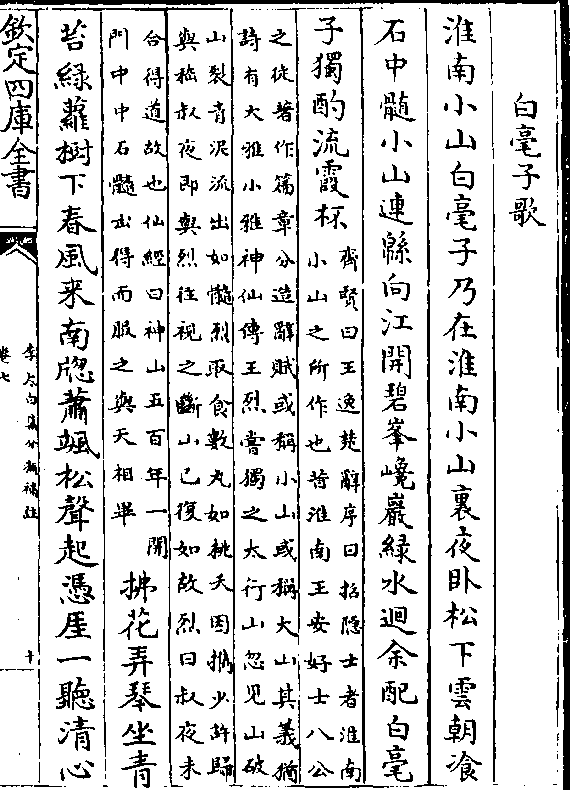 白毫子歌
淮南小山白毫子乃在淮南小山裏夜卧松下雲朝飡
石中髓小山連緜向江開碧峯巉巖緑水迴余配白毫
子獨酌流霞杯
齊賢曰王逸楚辭序曰招隱士者淮南
小山之所作也昔淮南王安好士八公
之徒著作篇章分造辭賦或稱小山或稱大山其義猶
詩有大雅小雅神仙傳王烈嘗獨之太行山忽見山破
山裂青泥流出如髓烈取食數丸如桃夭因攜少許歸
與嵇叔夜即與烈往視之斷山已復如故烈曰叔夜未
合得道故也仙經曰神山五百年一開
門中中石髓出得而服之與天相畢
拂花弄琴坐青
苔緑蘿樹下春風来南牕蕭颯松聲起憑厓一聽清心
欽定四庫全書
李太白集分類補註
卷七
十